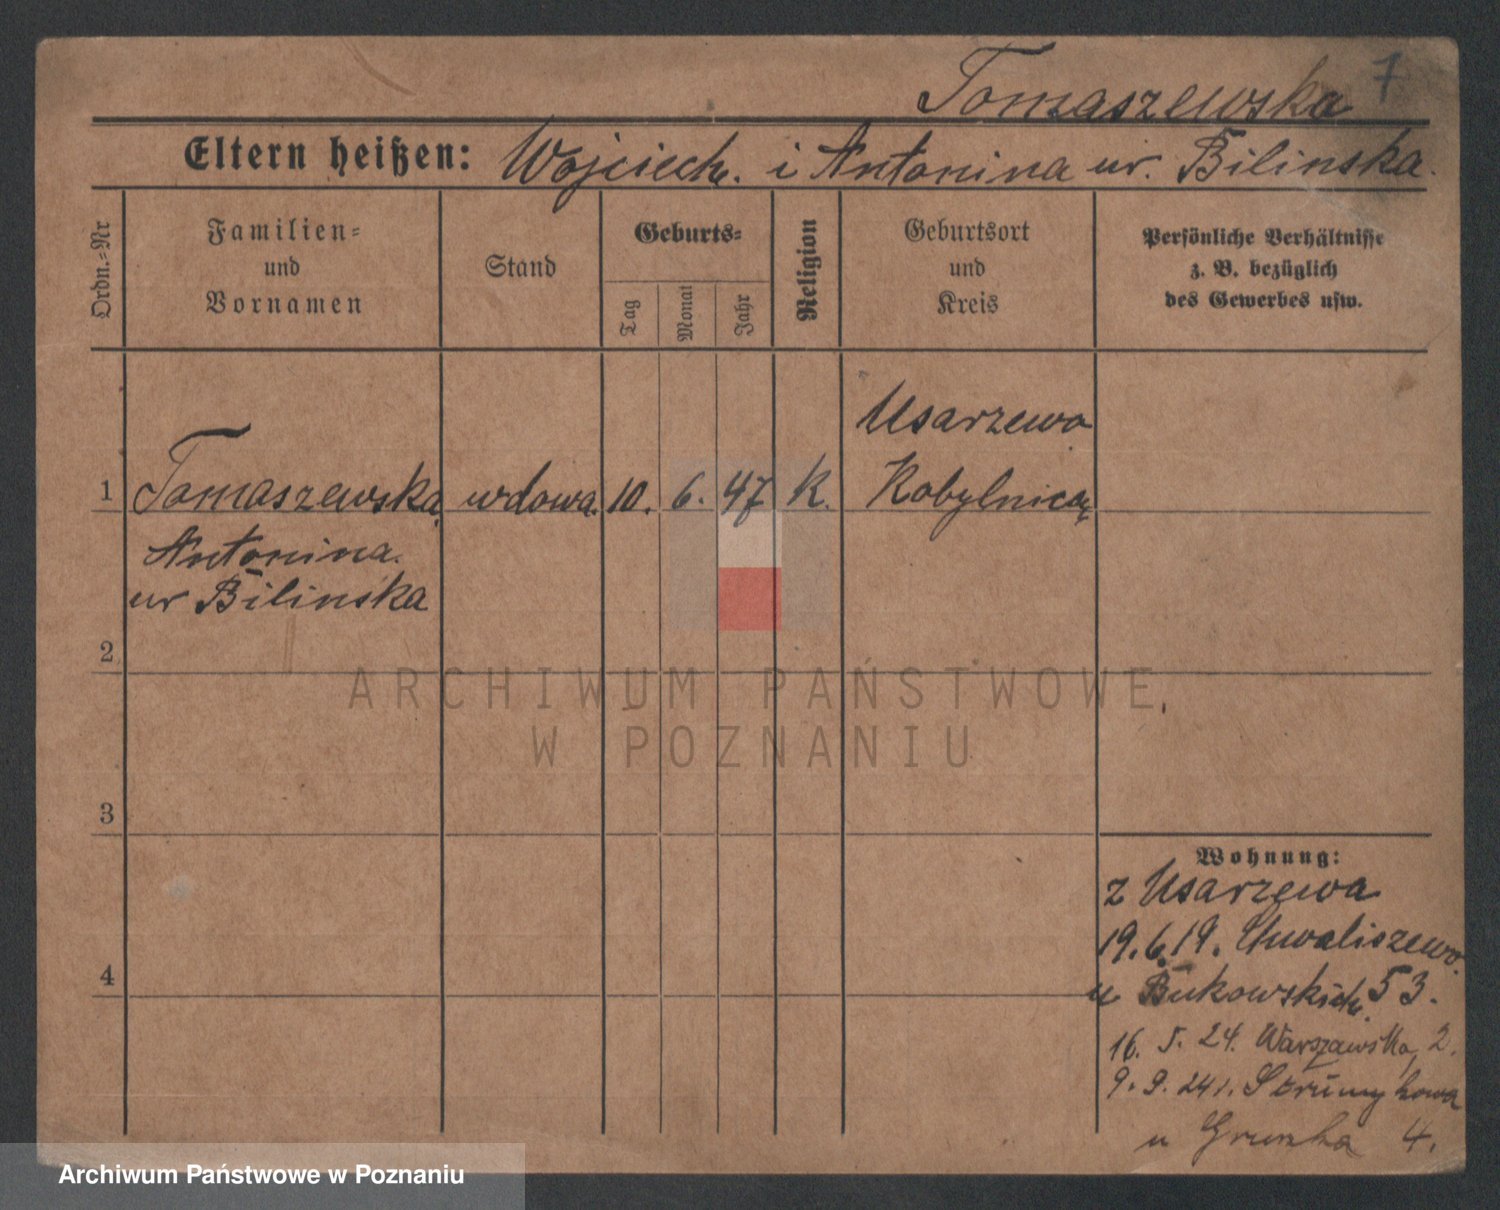 Tomaszewska 7
Eltern heißen: Wojciech. i Antonina ur. Bilinska.
Ordn.-Nr
Familien- und Vornamen
Stand
Geburts-
Tag
Monat
Jahr
Religion
Geburtsort und Kreis
Persönliche Verhältnisse
z. B. bezüglich
des Gewerbes usw.
Usarzewo
1 Tomaszewska wdowa. 10. 6. 47 K. Kobylnica
Antonina.
ur Bilinska
2
ARCHIWUM PAŃSTWOWE
W POZNANIU
3
4
Wohnung:
z Usarzewa
19.6.19. Chwaliszewo
u Bukowskich. 53.
16. 5. 24. Warszawska, 2.
9. 9. 24 r. Strumykowa
u 4.
Archiwum Państwowe w Poznaniu